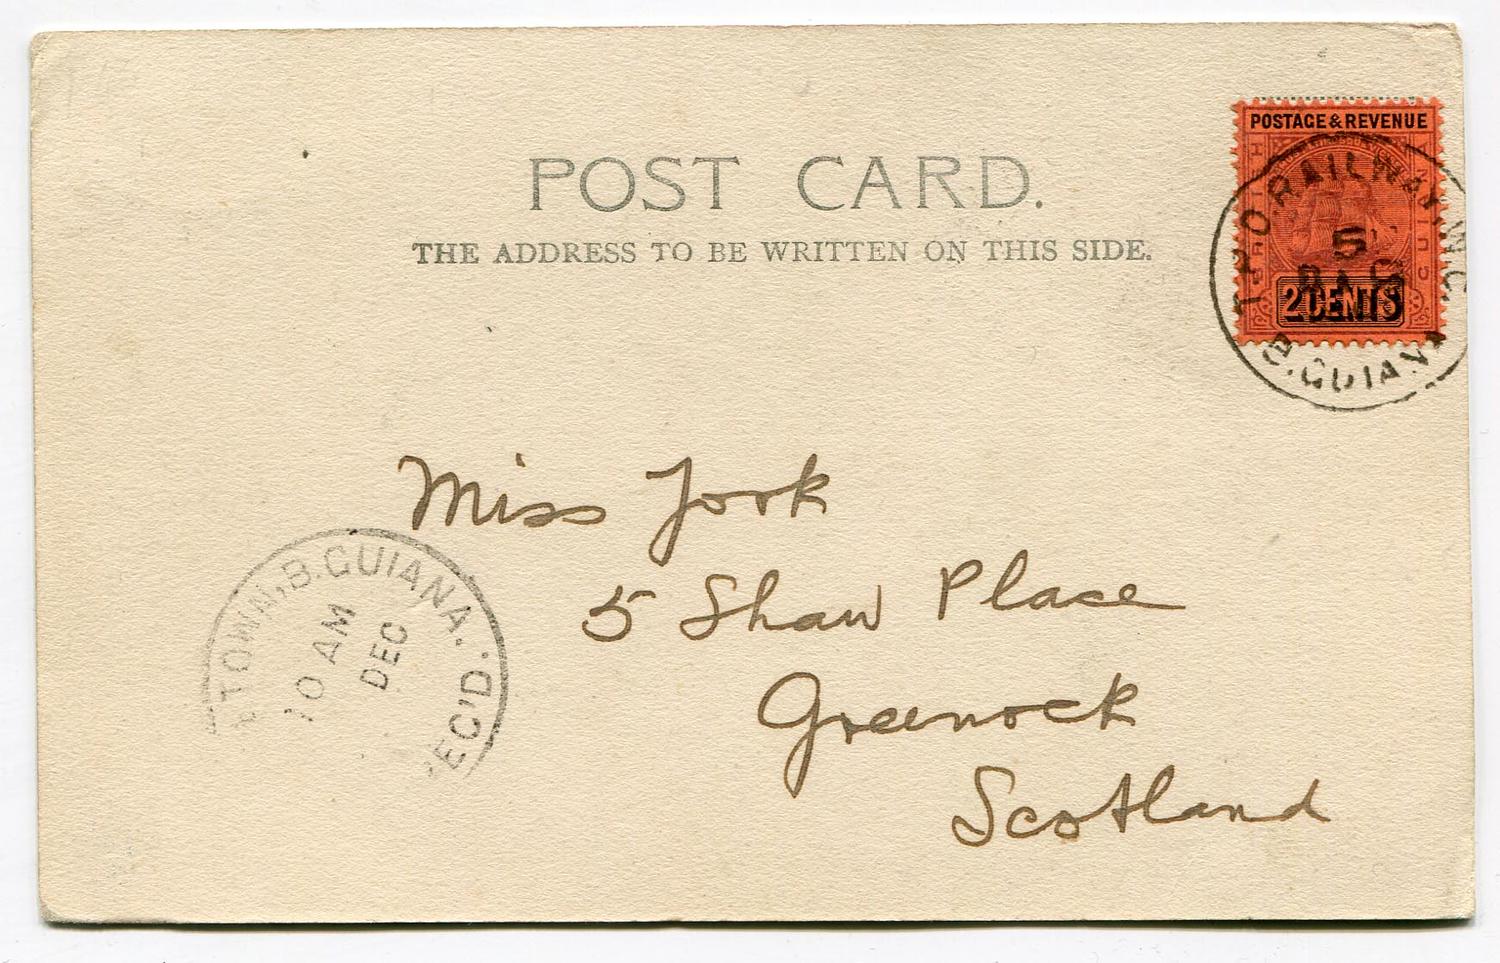 POST CARD.
THE ADDRESS TO BE WRITTEN ON THIS SIDE.
POSTAGE & REVENUE
2 CENTS
T.P.O. RAILWAY. W.C.
5
B. GUIANA
Miss York
5 Shaw Place
Greenock
Scotland
TOWN, B. GUIANA.
10 AM
DEC
EC'D.